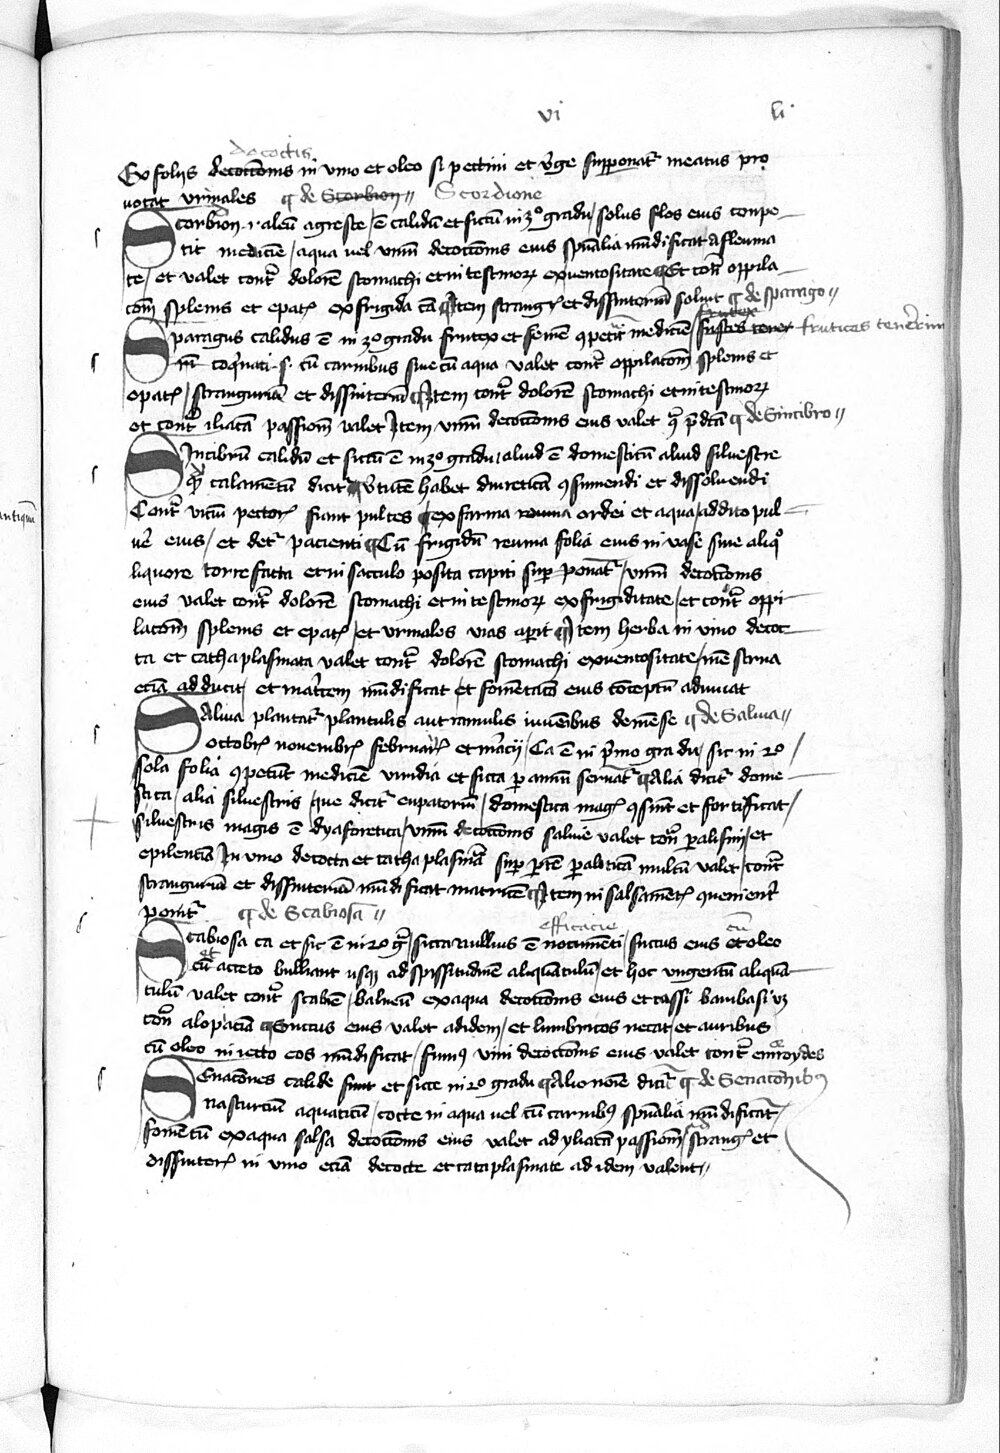 vi li
decoctis
Ex folijs decoctōnis in vino et oleo si pectini et v̄ge supponat᷑ meatus pro
uocat vrinales ¶ de Scorbion Scordione
Scorbion .i. aleū agreste / ē calidū et siccū in 3º gradu / solus flos eius conpe
tit medicīe / aqua vel vinū decoctōnis eius spūalia mūdificat a fleuma
te / et valet contᵃ dolorē stomachi et intestinoꝝ ex ventositate ¶ Et contᵃ oppila
cōm splenis et epatꝭ ex frigida cā ¶ Itē strangꝭ et dissinteriā soluit ¶ de sparago
frutex
Sparagus calidus ē in 3º gradu frutex et semē ꝯpetit medicīe frutices tenerrim
coq̄nati .s. cū carnibus siue cū aqua valet contᵃ oppilacōm splenis et
epatꝭ / stranguriā et dissinteriā ¶ Item contᵃ dolorē stomachi et intestinoꝝ
et contᵃ iliacā passionē valet Item vinū decoctōnis eius valet ꝯᵃ p̄dcā ¶ de Sincibro
Sincibrū calidū et siccū ē in 3º gradu / aliud ē domesticū aliud siluestre
calamentū dicit᷑ v̄tutē habet diureticā ꝯsumendi et dissoluendi
Contᵃ viciū pectorꝭ fiant pultes ex farina ordei et aqua / addito pul
ue eius / et det᷑ pacienti ¶ Cū frigidū reuma folia eius in vase sine aliqº
liquore torrefacta et in sacculo posita capiti suꝑ ponat᷑ / vinū decoctōnis
eius valet contᵃ dolorē stomachi et intestinoꝝ ex frigiditate / et contᵃ oppi
lacōm splenis et epatꝭ / et vrinales vias aperit ¶ Item herba in vino decoc
ta et cathaplasmata valet contᵃ dolorē stomachi ex ventositate / mēstrua
eciā adducit / et matricem mūdificat / et fomētacō eius cōceptū adiuuat
Saluia plantat᷑ plantulis aut ramulis iuuēibus de mēse ¶ de Saluia
octobrꝭ nouembrꝭ februarꝭ et marcij / Ca ē in p̄mo gradu / sic in 2º
sola folia ꝯpetūt medicīe viridia et sicca ꝑ annū seruāt᷑ ¶ Alia dicit᷑ dome
stica / alia siluestris / que dicit᷑ eupatoriū / domestica magꝭ ꝯsūit et fortificat /
siluestris magis ē dyaforetica / vinū decoctōnis saluie valet contᵃ paralisim / et
epilenciā In vino decocta et cathaplasmata suꝑ ptē paraliticā multū valet / contᵃ
stranguriā et dissinteriā mūdificat matricē ¶ Item in salsamentꝭ ꝯuenient᷑
ponit᷑ ¶ de Scabiosa
efficacie cū
Scabiosa ca et sic ē in 2º gᵃ / sicca nullius ē nocumēti / succus eius et oleo
cū aceto bulliant usqꝫ ad spissitudinē aliquātulū / et hoc vngentū aliquā
tulū valet contᵃ scabiē / balneū ex aqua decoctōnis eius et tassi barbassi vꝫ
contᵃ alopiciā ¶ Succus eius valet ad idem / et lumbricos necat / et auribus
cū oleo iniecto eos mūdificat / fumus vini decoctōnis eius valet contᵃ emroydes
Senacōnes calide sunt et sicce in 2º gradu ¶ Alio noīe dicit᷑ ¶ de Senaconibꝰ
nasturciū aquaticū / cocte in aqua vel cū carnibꝰ spūalia mūdificat᷑
fomētū ex aqua salsa decoctōnis eius valet ad yliacā passionē / strangꝭ et
dissinterꝭ in vino eciā decocte et cataplasmate ad idem valent